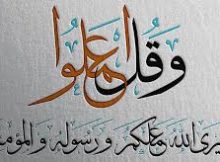 وقل اعملوا
يرى الله عملكم ورسوله والمؤمن